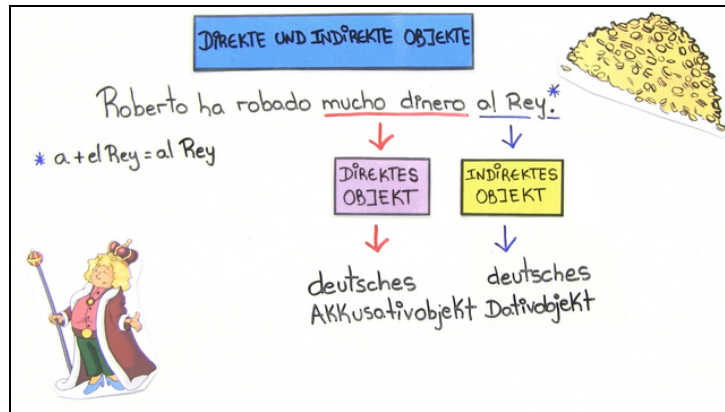 DIREKTE UND INDIREKTE OBJEKTE
Roberto ha robado mucho dinero al Rey.*
* a + el Rey = al Rey
DIREKTES
OBJEKT
INDIREKTES
OBJEKT
deutsches
Akkusativobjekt
deutsches
Dativobjekt